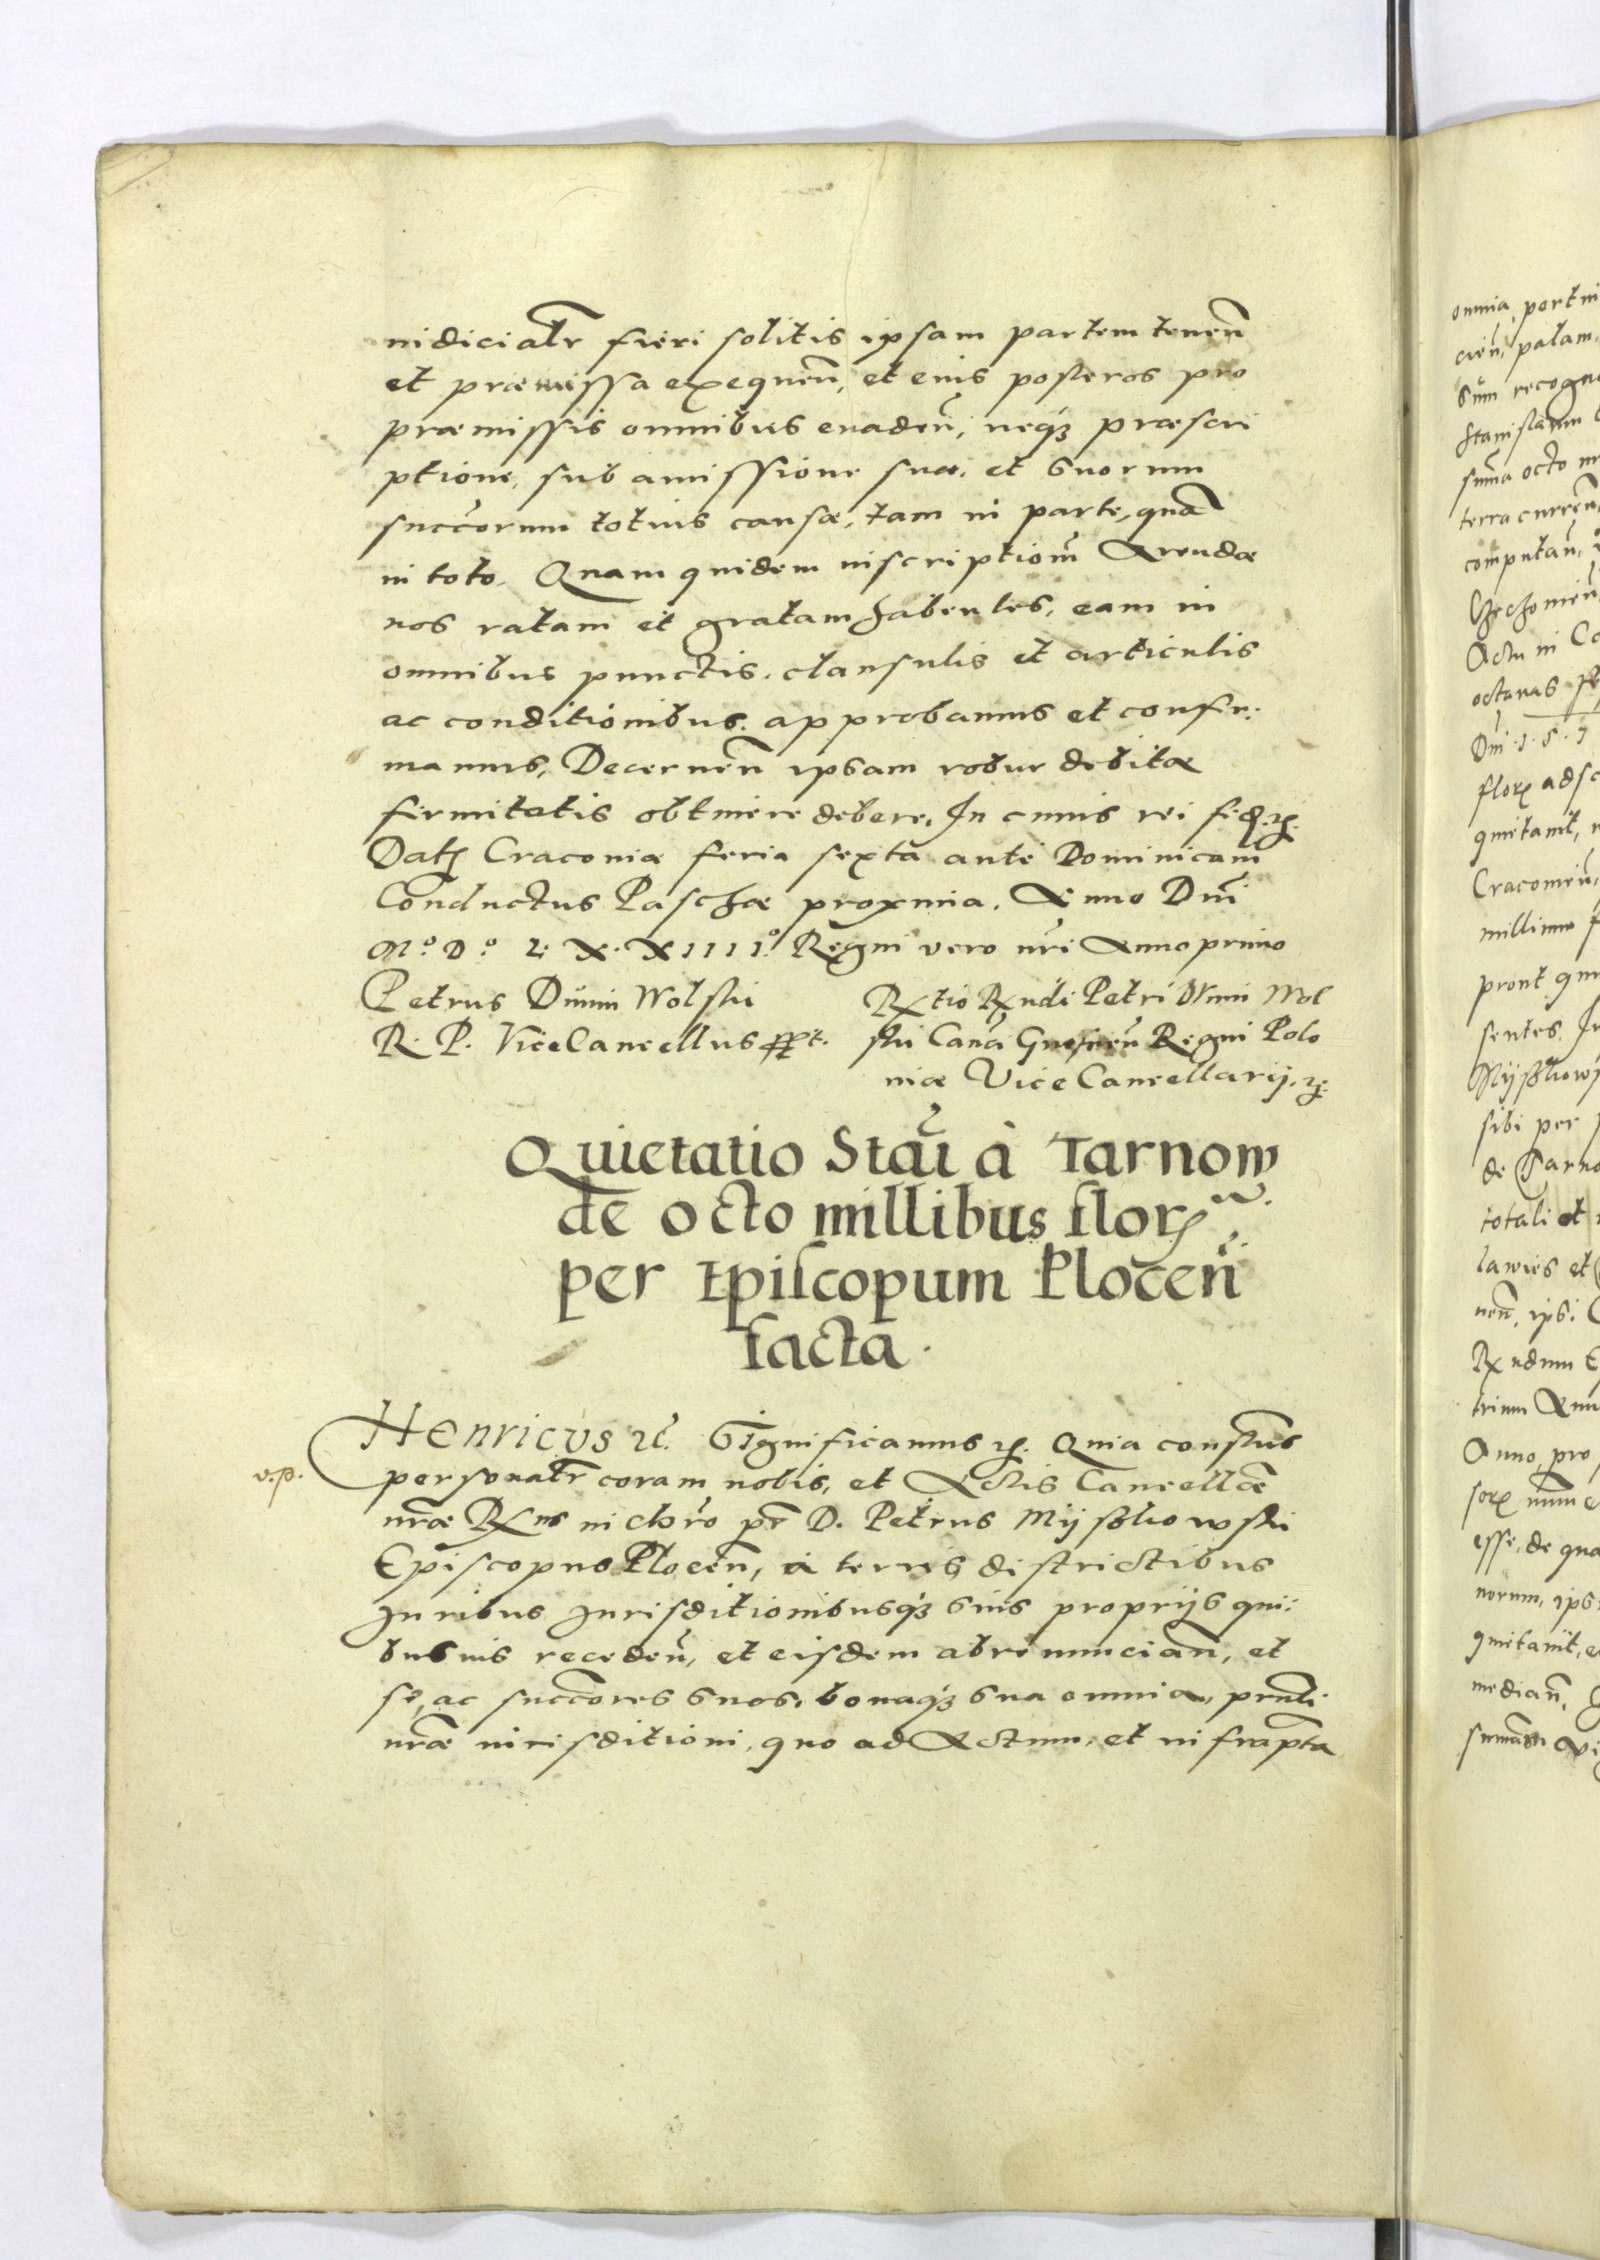 iudicialr fieri solitis ipsam partem tenen
et præmissa exequen, et eius posteros pro
præmissis omnibus evaden, neqz præscri
ptione, sub amissione suæ, et suorum
succorum totius causæ, tam in parte, quā
in toto. Quam quidem inscriptiom Arendæ
nos ratam et gratam habentes, eam in
omnibus punctis, clausulis et articulis
ac conditionibus. approbamus et confir:
mamus, Decernen ipsam robur debitæ
firmitatis obtinere debere. In cuius rei fid. etc.
Dat Cracoviæ feria sexta ante Dominicam
Conductus Paschæ proxima. Anno Dni
Mº. Dº. L. X. XIIIIº. Regni vero nri Anno primo
Petrus Dunin Wolski
R. P. ViceCancellus sst.
Rxtio Rxndi Petri Dunin Wol
ski Cañci Gnesnen Regni Polo
niæ ViceCancellarij. etc.
Quietatio Stai à Tarnow
de octo millibus flor
per Episcopum Plocen
facta.
Henricus etc. Significamus etc. Quia constus
v. p.
personalr coram nobis, et Actis Cancellæ
nræ Rxns in chro pr D. Petrus Mijszkowski
Episcopus Plocen, à terris districtibus
Iuribus Iurisditionibusqz suis proprijs qui:
busvis receden, et eisdem abrenuncian, et
se, ac succores suos, bonaqz sua omnia, prnti
nræ iurisditioni, quo ad Actum, et infrapta
omnia, pertin
cien, palam
sum recogno
Stanislaum
suma octo m
terra curren
computan,
Czechomien
Actu in Ca
octavas
Dni 1.5.7
flor adsc
quietavit,
Cracovien,
millium f
prout qui
sentes. In
Mijszkowsk
sibi per
de Tarno
totali et
lawies et
nen, ipsi
Rxndum E
trium Anno
Anno, pro
sor num
esse, de qua
norum, ips
quietavit, e
median,